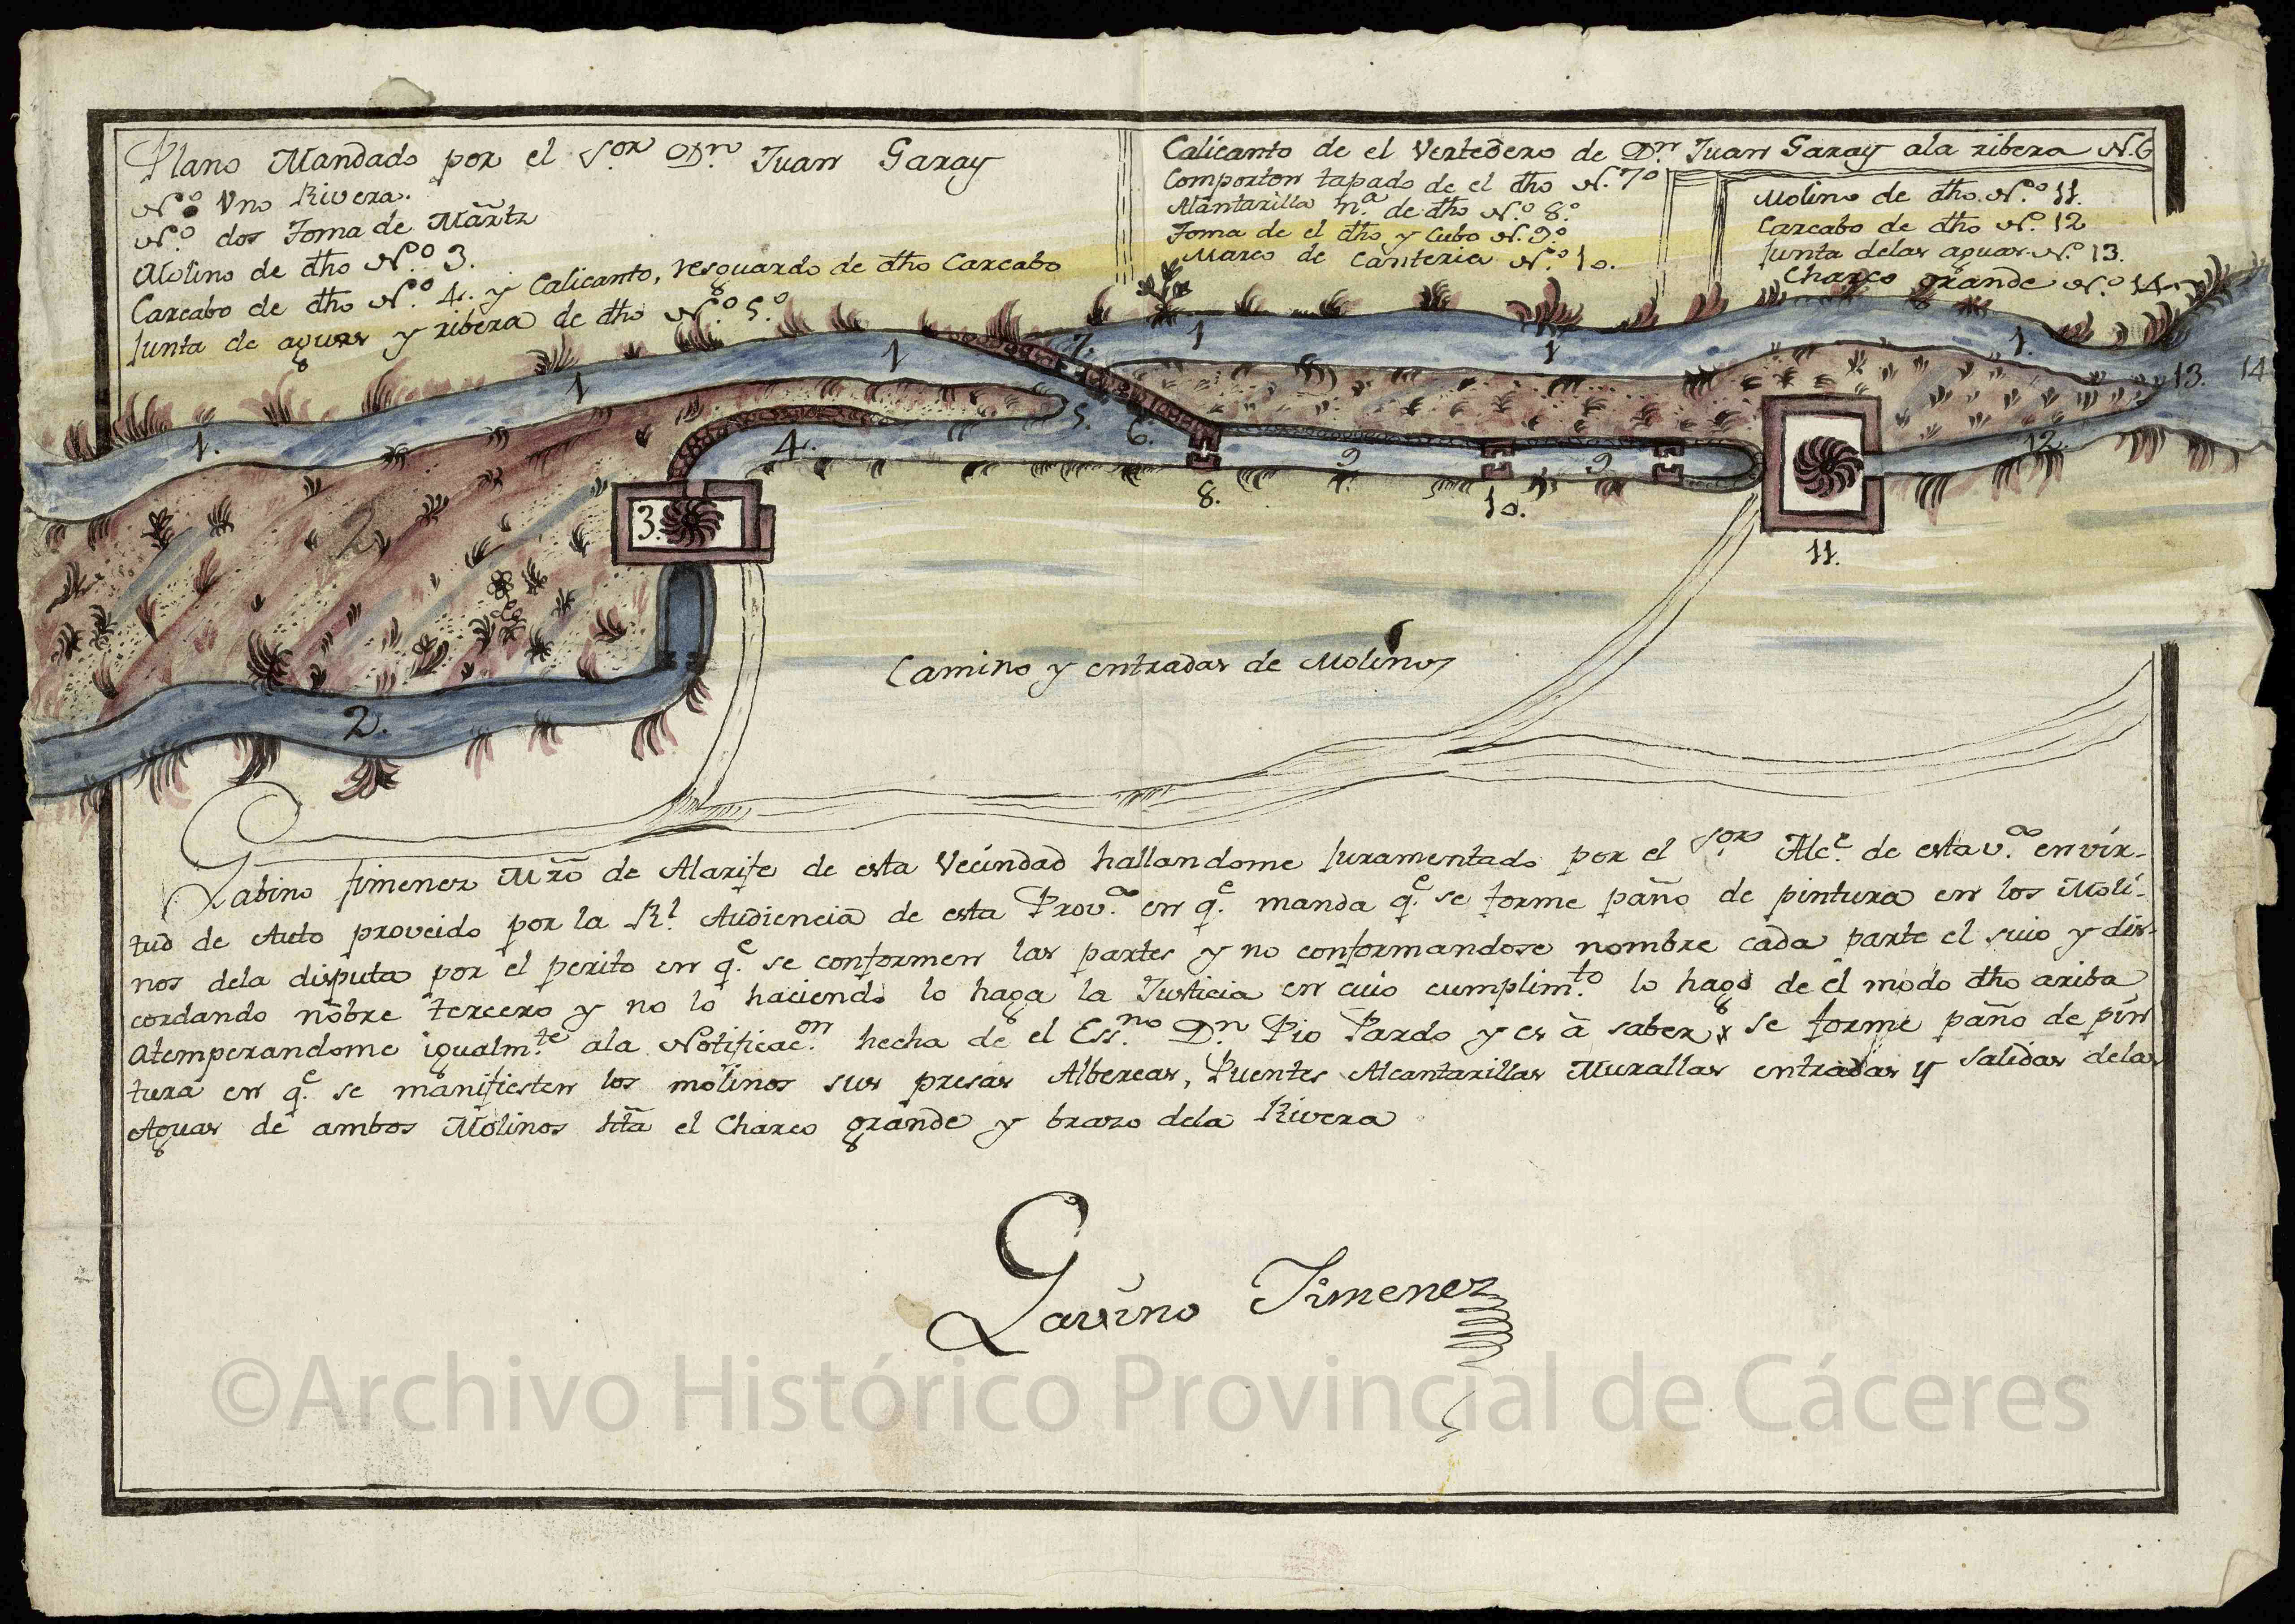 Plano Mandado por el Sor Dn Juan Garay
No Vno Rivera.
No dos Toma de Martz
Molino de dho No 3.
Carcabo de dho No 4. y Calicanto, resguardo de dho Carcabo
Junta de aguas y ribera de dho No 5o
Calicanto de el Vertedero de Dn Juan Garay ala ribera N. 6
Comporton tapado de el dho N. 7o
Alantarilla de dho No 8o
Toma de el dho y Cubo N. 9o
Marco de Canteria No 10.
Molino de dho No 11.
Carcabo de dho No 12
Junta delas aguas No 13.
Charco grande No 14
1.
1
1
7.
1
1
1.
13.
14
2
3.
4.
5.
6.
8.
9
10.
9
11.
12.
2.
Camino y entradas de Molinos
Gabino Jimenez Mro de Alarife de esta Vecindad hallandome Juramentado por el Sor Alce de esta va en vir-
tud de Auto proveido por la Rl Audiencia de esta Prova en qe manda qe se forme paño de pintura en los Moli-
nos dela disputa por el perito en qe se conformen las partes y no conformandose nombre cada parte el suio y dis-
cordando nobre tercero y no lo haciendo lo haga la Justicia en cuio cumplimto lo hago de el modo dho ariba
atemperandome igualmte ala Notificacon hecha de el Essno Dn Pio Pardo y es à saber se forme paño de pin
tura en qe se manifiesten los molinos sus presas Albercas, Puentes Alcantarillas Murallas entradas y salidas delas
Aguas de ambos Molinos hta el Charco grande y brazo dela Rivera
Gavino Jimenez
©Archivo Histórico Provincial de Cáceres